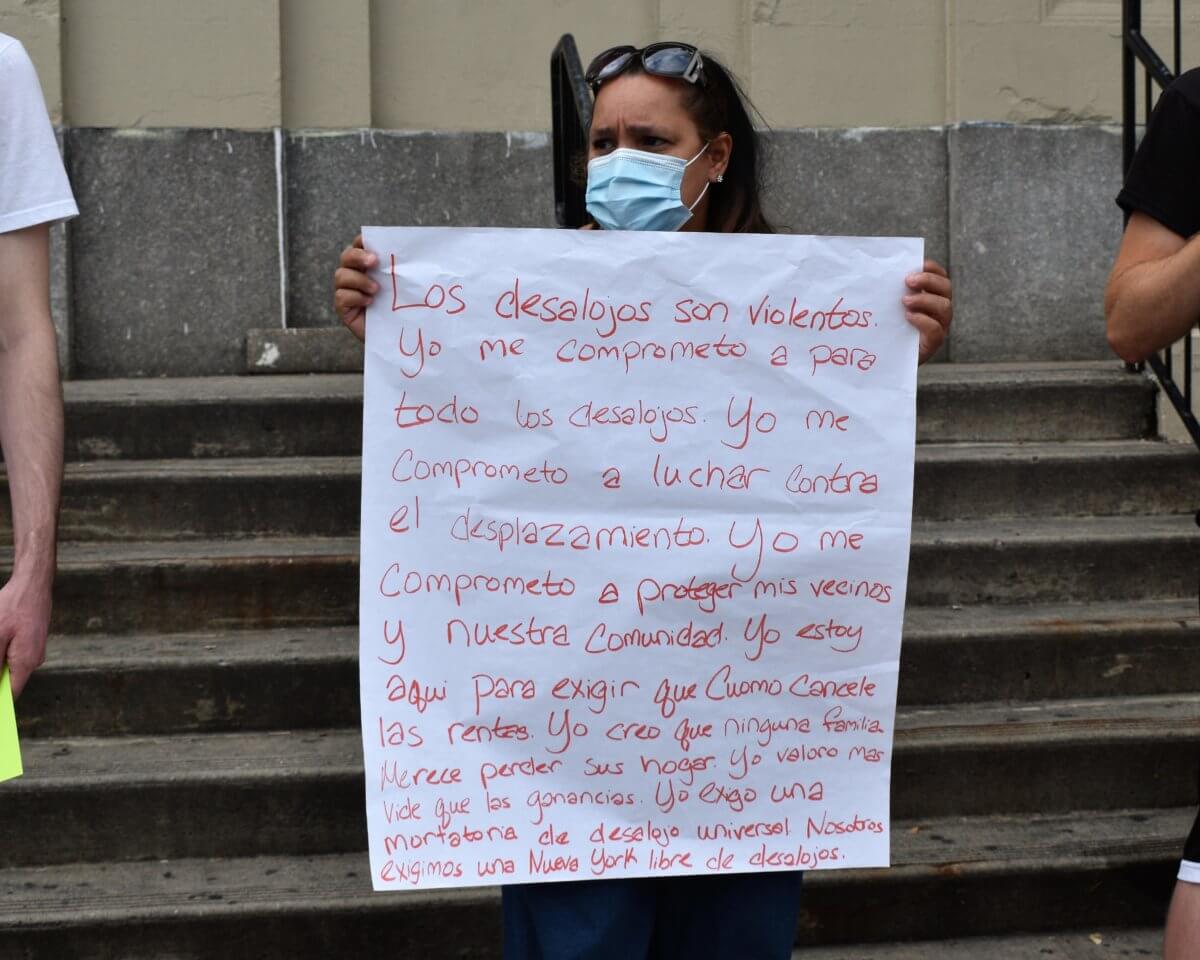 Los desalojos son violentos.
Yo me comprometo a para
todo los desalojos. Yo me
comprometo a luchar contra
el desplazamiento. Yo me
comprometo a proteger mis vecinos
y nuestra comunidad. Yo estoy
aqui para exigir que Cuomo Cancele
las rentas. Yo creo que ninguna familia
Merece perder sus hogar. Yo valoro mas
vide que las ganancias. Yo exigo una
mortatoria de desalojo universal. Nosotros
exigimos una Nueva York libre de desalojos.